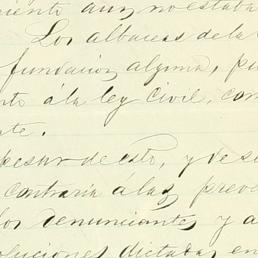 miento aun no estaba
Los albaceas de la
fundacion alguna, pu
nto á la ley Civil, com
te.
pesar de esto, y de s
contraria á las preve
los denunciantes y a
oluciones dictadas en